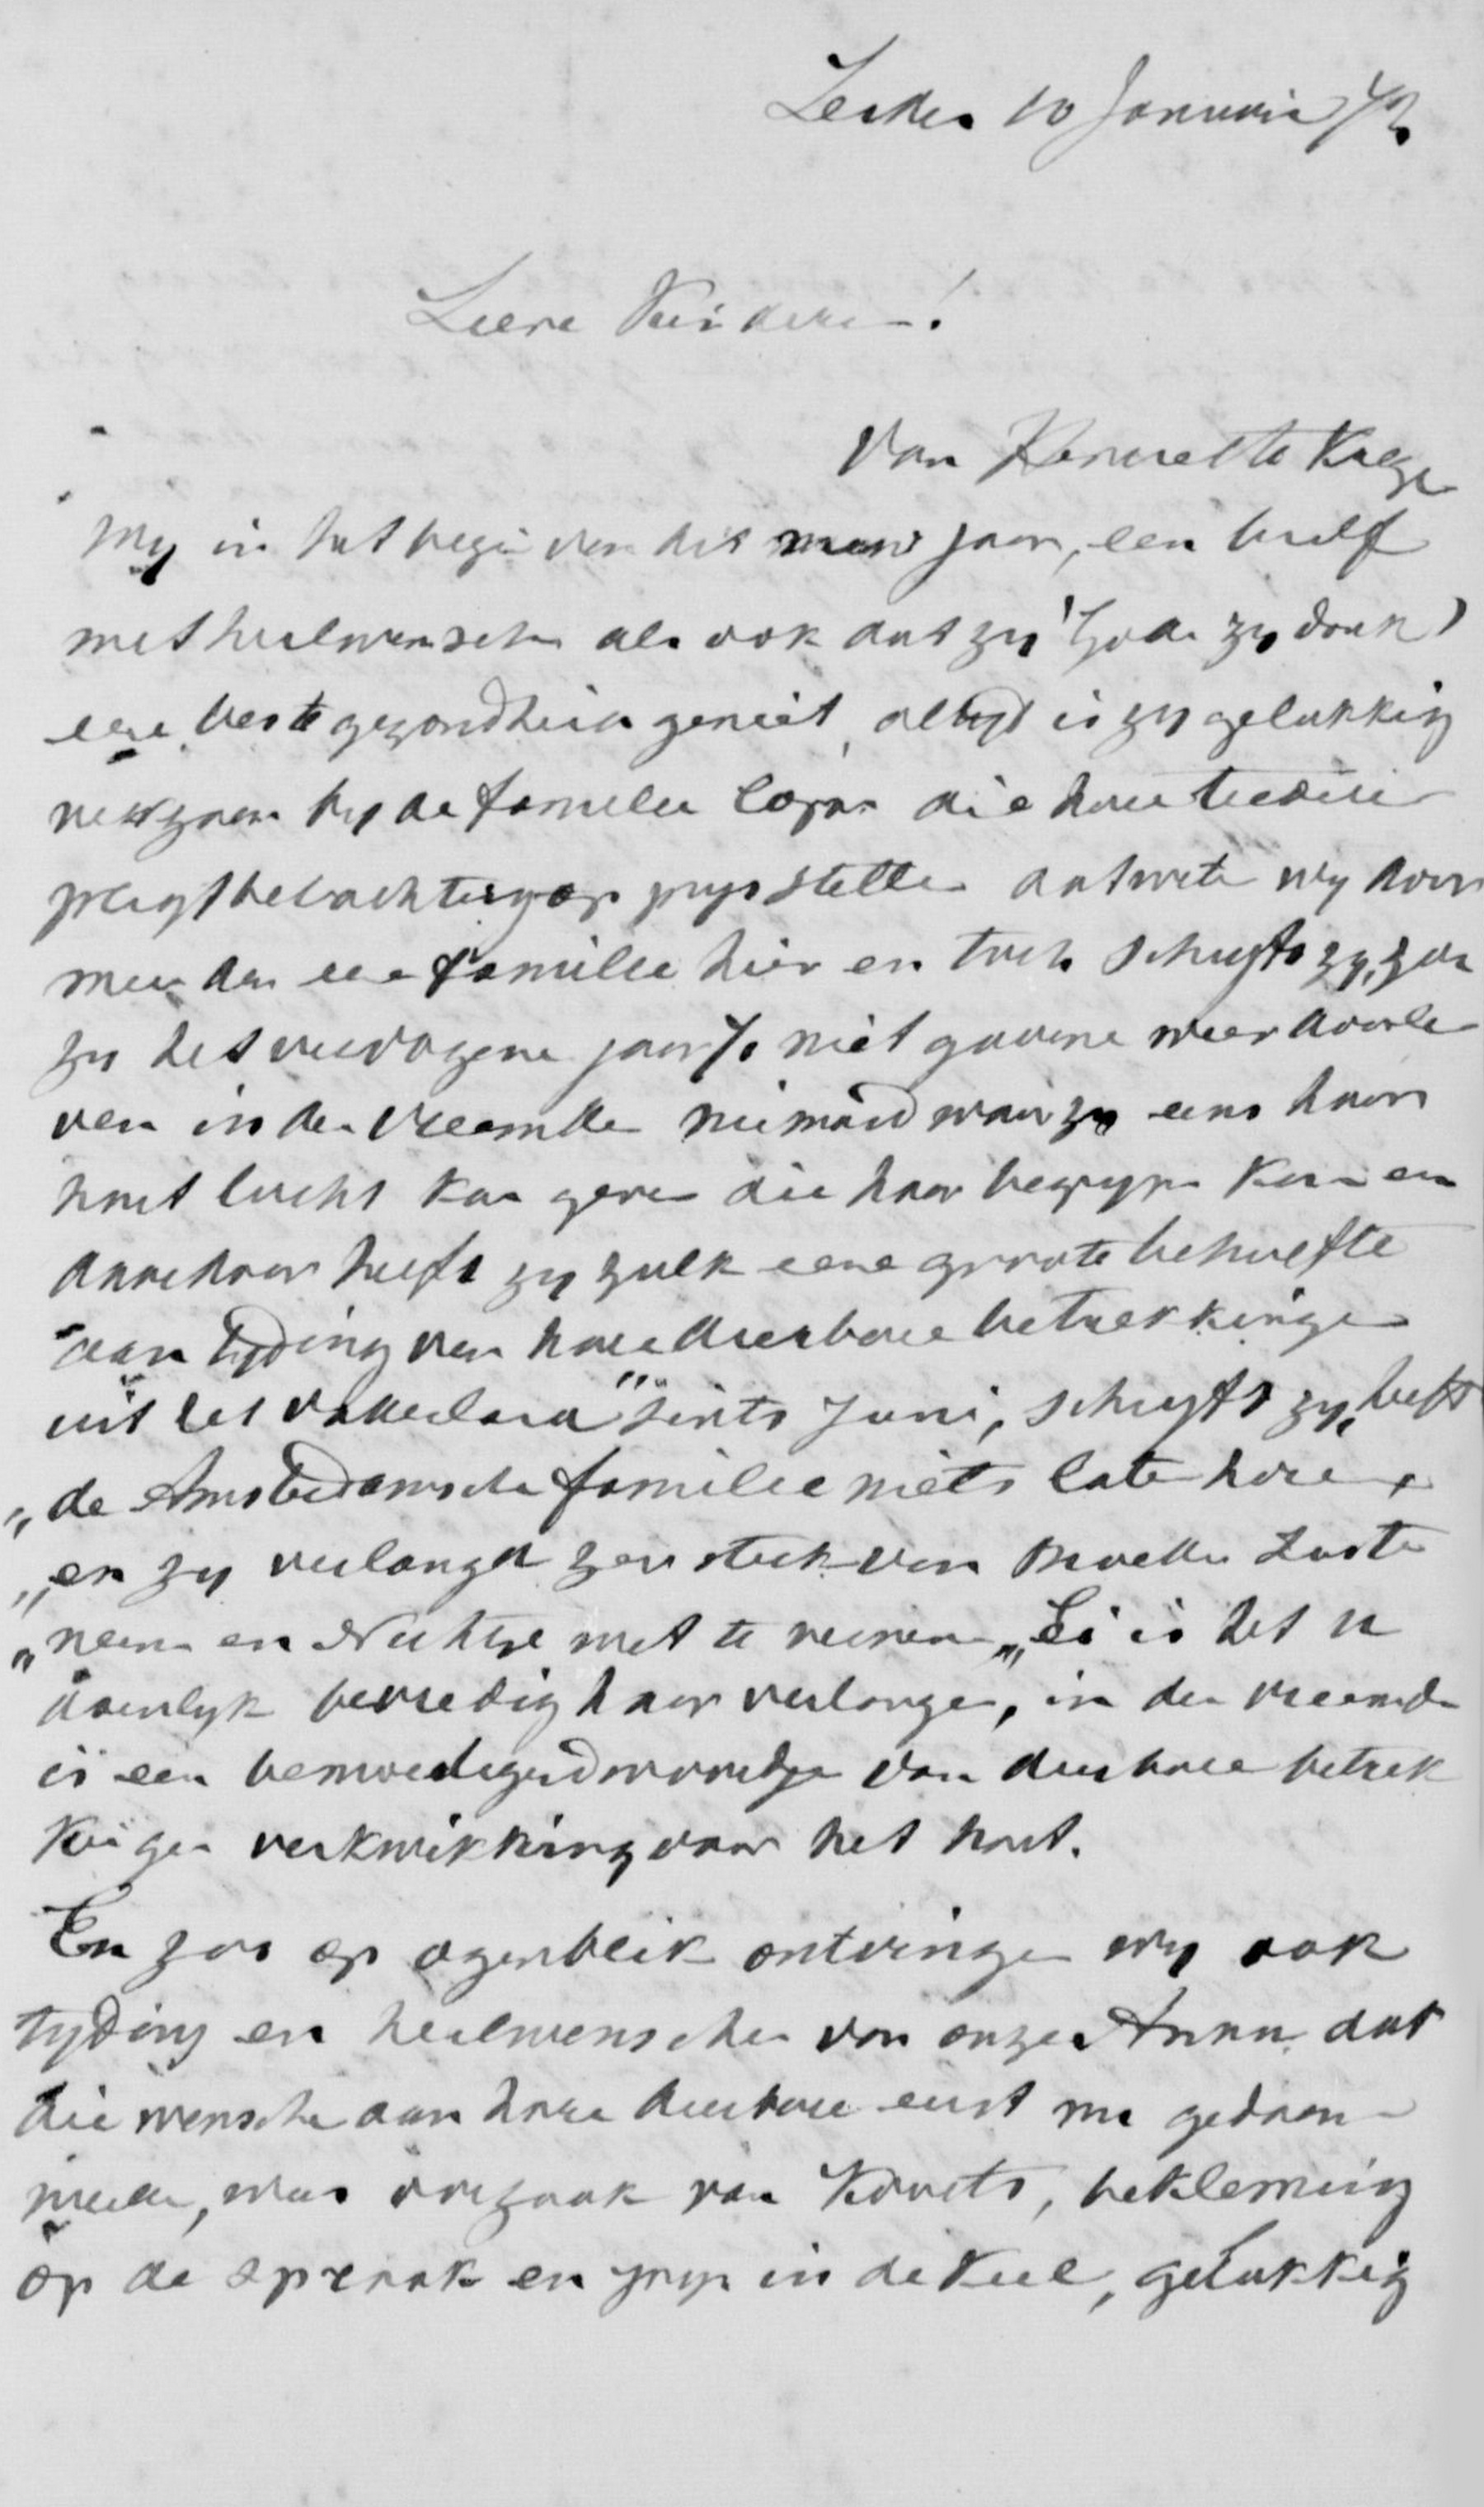 Leiden 10 Januarie 72
Lieve Kinderen!
Van Henriette Kreeg
my in het begin van dit nieuw jaar, een brief
met heilwensch als ook dat zy (Gode zy dank)
eene beste gezondheid geniet, altyd is zy gelukkig
werkzaam by de familie die hare
pligtbetrachting op prys stellen dat weten wy door
meer dan eene familie hier en toch schryft zy, zou
zy het vervlogene jaar 71 niet gaarne weer doorle
ven in den vreemden niemand waar zy eens haar
hart lucht kan geven die haar begrypen kan en
daardoor heeft zy zulk eene groote behoefte
aan tyding van hare dierbare betrekkingen
uit het vaderland" "sints Juni, schryft zy, heeft
"de Amsterdamsche familie niets laten hooren,
"en zy verlangd zeer sterk van Moeder Zuster
"neem en Nichtje wat te vernemen" Ei is het u
doenlyk bevredig haar verlangen, in den vreemde
is een bemoedigend woordje van dierbare betrek
kingen verkwikking voor het hart.
En zoo op ogenblik ontvingen wy ook
tyding en heilwenschen van onzen Anna. dat
die wenschen aan hare dierbare eerst nu gedaan
werden, was oorzaak van Koorts, beklemming
op de spraak en pyn in de Keel, gelukkig